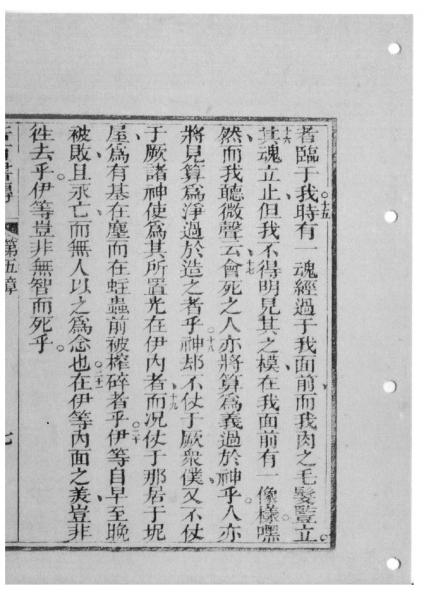 者臨于我。十五時有一魂經過于我面前而我肉之毛髮豎立。
十六其魂立止但我不得明見其之模、在我面前有一像樣。嘿
然而我聽微聲云、十七會死之人亦將算爲義過於神乎。人亦
將見算爲淨過於造之者乎。十八神却不仗于厥衆僕又不仗
于厥諸神使爲其所置光在伊內者、十九而況仗于那居于坭
屋爲有基在塵而在蛀蟲前被榨碎者乎。二十伊等自早至晚
被敗且永亡、而無人以之爲念也。二一在伊等內面之美豈非
徃去乎。伊等豈非無智而死乎。
第五章
七